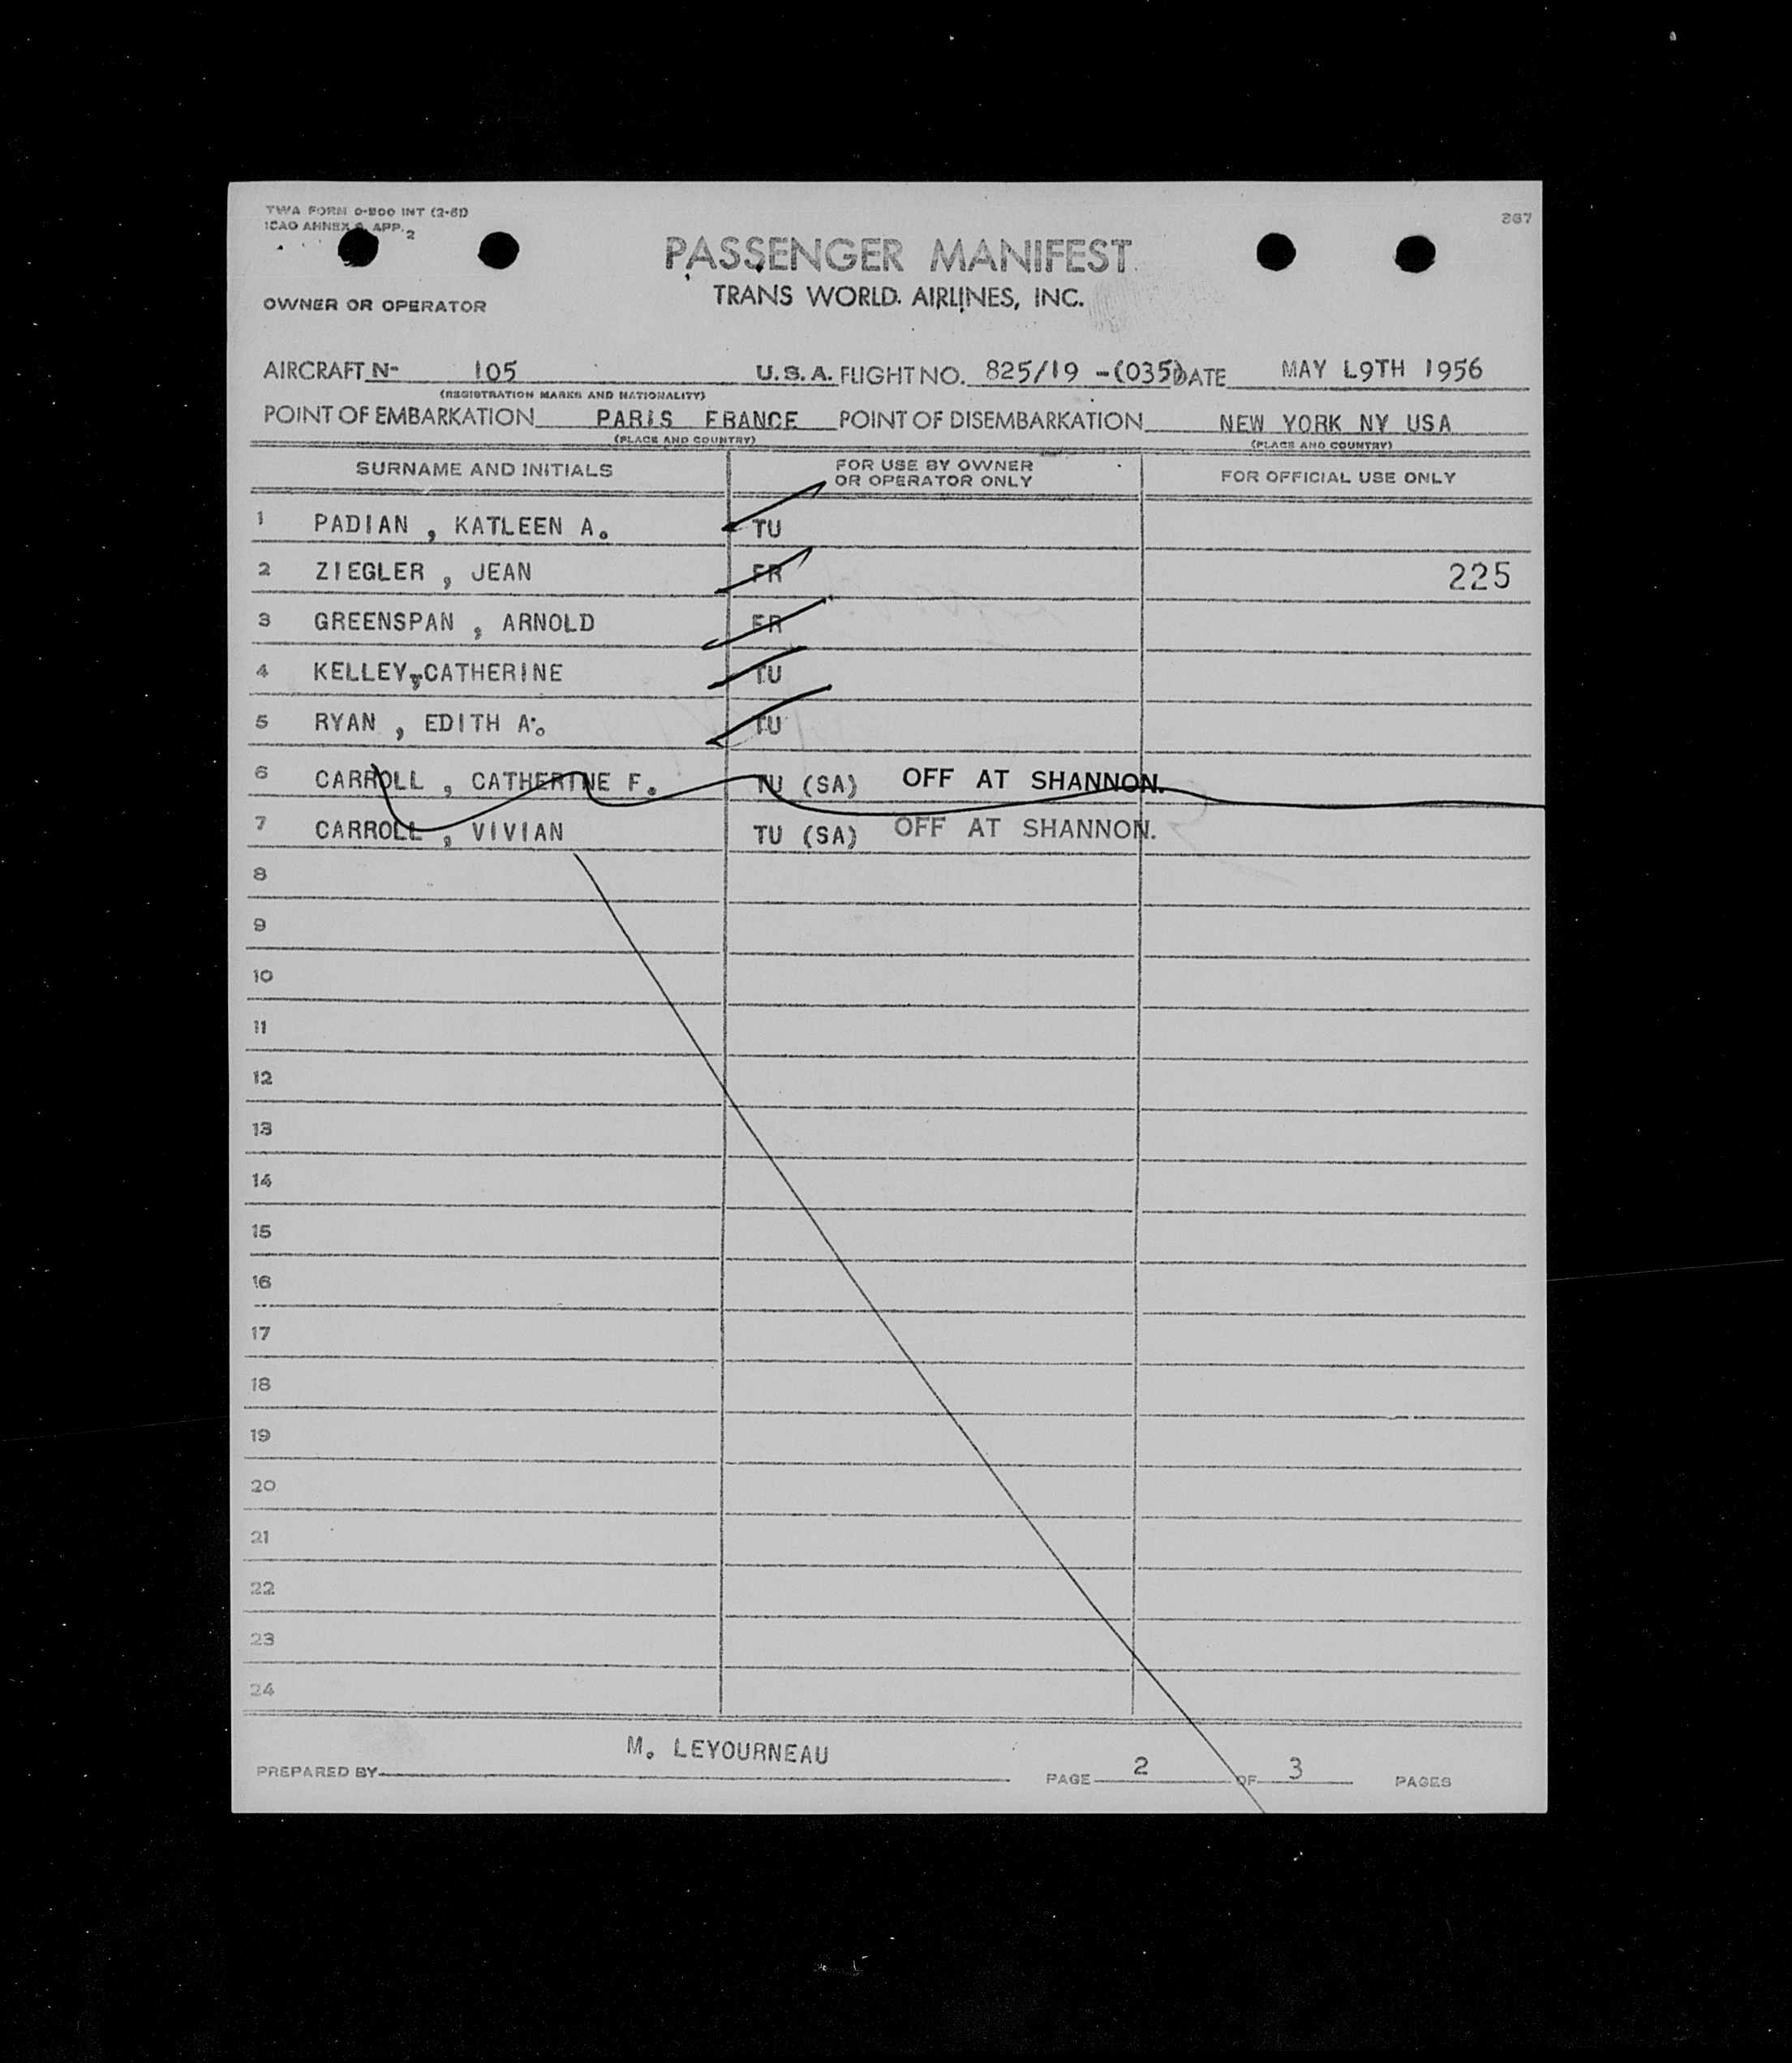 TWA FORM O-800 INT (2-51)
ICAO ANNEX 9, APP. 2
267
PASSENGER MANIFEST
TRANS WORLD AIRLINES, INC.
OWNER OR OPERATOR
AIRCRAFT N- 105 U.S.A. FLIGHT NO. 825/19 -(035) DATE MAY L9TH 1956
(REGISTRATION MARKS AND NATIONALITY)
POINT OF EMBARKATION PARIS FRANCE POINT OF DISEMBARKATION NEW YORK NY USA
(PLACE AND COUNTRY) (PLACE AND COUNTRY)
SURNAME AND INITIALS FOR USE BY OWNER OR OPERATOR ONLY FOR OFFICIAL USE ONLY
1 PADIAN , KATLEEN A. TU
2 ZIEGLER , JEAN FR 225
3 GREENSPAN , ARNOLD FR
4 KELLEY,CATHERINE TU
5 RYAN , EDITH A. TU
6 CARROLL , CATHERINE F. TU (SA) OFF AT SHANNON.
7 CARROLL , VIVIAN TU (SA) OFF AT SHANNON.
8
9
10
11
12
13
14
15
16
17
18
19
20
21
22
23
24
PREPARED BY M. LEYOURNEAU PAGE 2 OF 3 PAGES